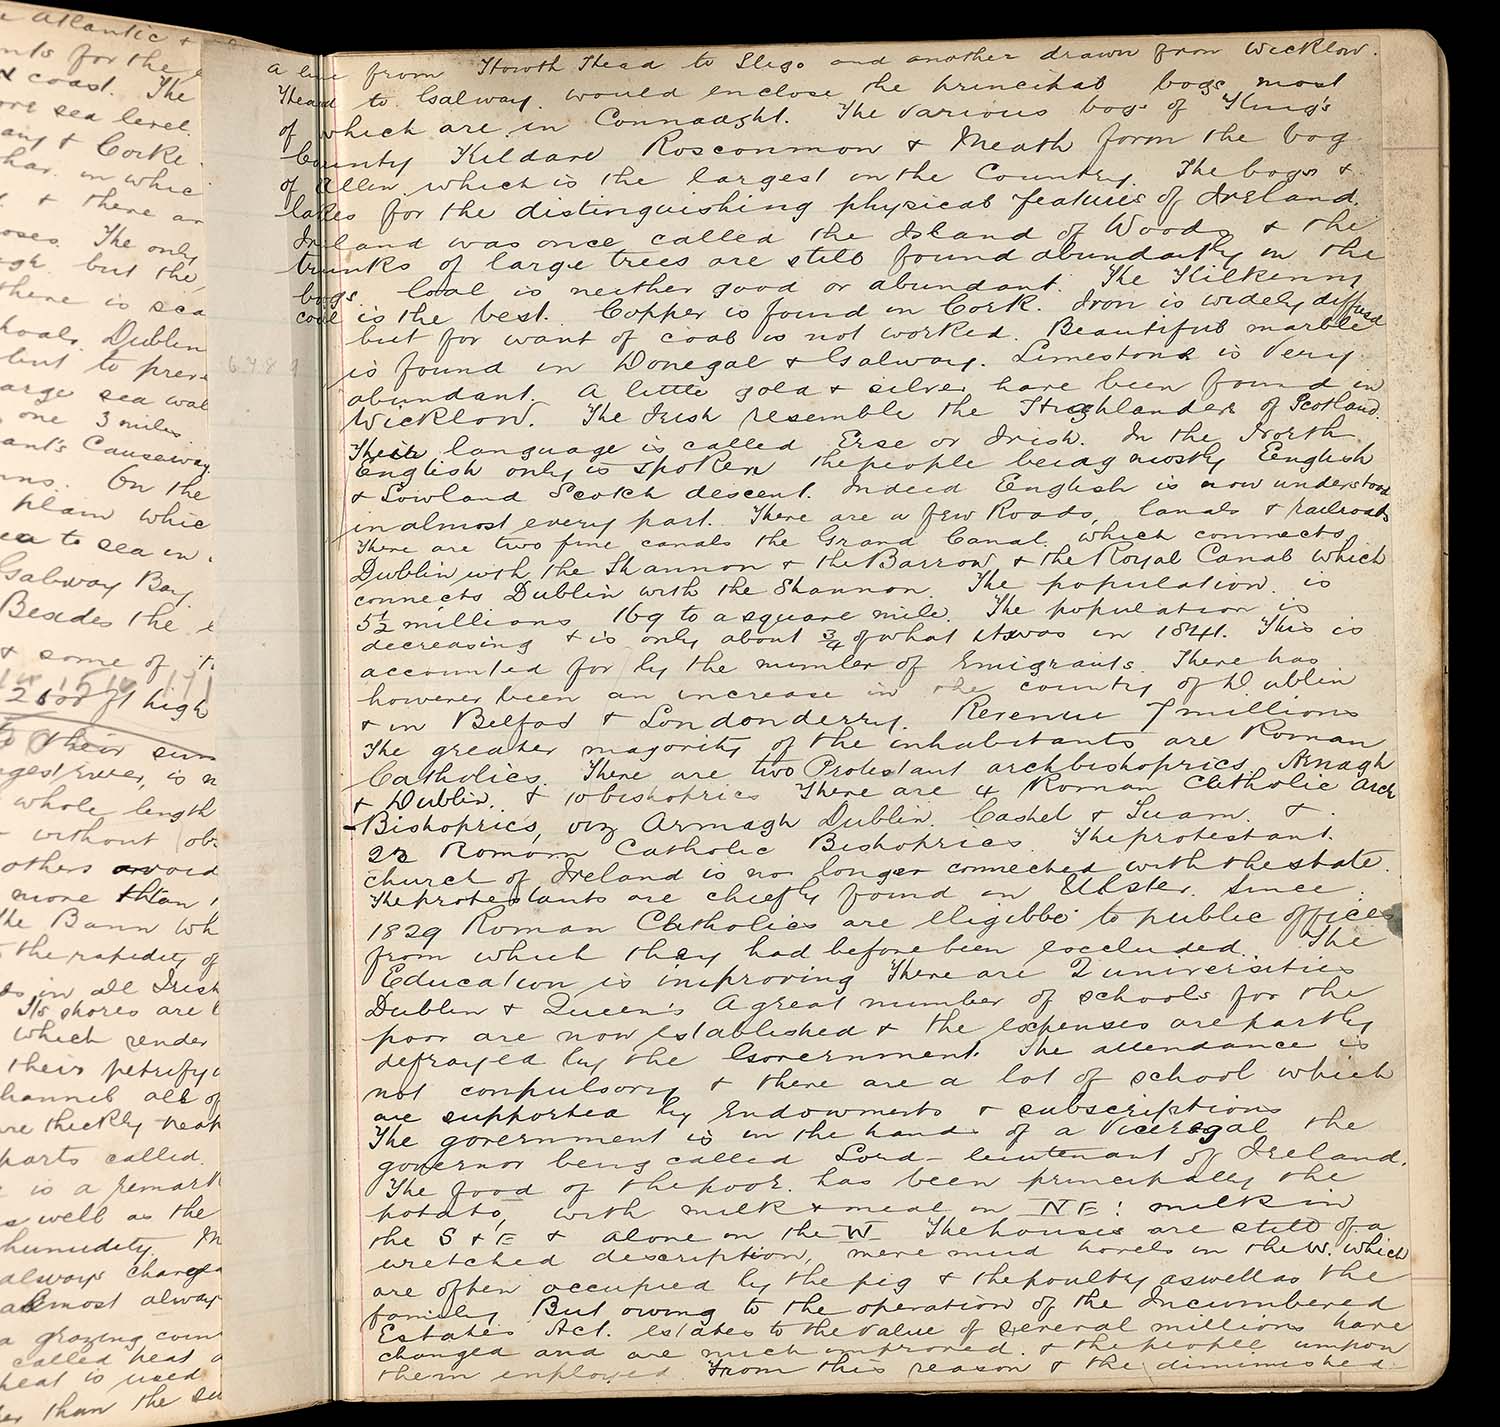 e Atlantic &
nts for the
& coast. The
ore sea level.
any & Corke
har. in whic
& there ar
oses. The only
ugh. but the
there is sca
hoals. Dublin
but to prev
arge sea wal
one 3 miles.
ant's Causeway
ns. On the
plain whic
ea to sea in
Galway Bay.
Besides the
& some of
2500 ft high
to their sum
ngest river, is n
whole length
without obs
others avoid
more than
The Bann wh
the rapidity of
ds in all Irish
Its shores are
which render
their petrify
hannel all of
are thickly
parts called.
is a remark
s well as the
humidity. In
always changea
almost alway
a grazing coun
called peat
peat is used
er than the su
6 7 8 9
A line from Howth Head to Sligo and another drawn from Wicklow.
Head to Galway. would enclose the principal bogs most
of which are in Connaught. The various bogs of King's
County Kildare Roscommon & Meath form the bog
of Allen. which is the largest in the Country. The bogs &
lakes for the distinguishing physical features of Ireland.
Ireland was once called the Island of Woods & the
trunks of large trees are still found abundantly in the
bogs. Coal is neither good or abundant. The Kilkenny
coal is the best. Copper is found in Cork. Iron is widely diffused
but for want of coal is not worked. Beautiful marble
is found in Donegal & Galway. Limestone is very
abundant. A little gold & silver have been found in
Wicklow. The Irish resemble the Highlanders of Scotland.
Their language is called Erse or Irish. In the North
English only is spoken the people being mostly English
& Lowland Scotch descent. Indeed English is now understood
in almost every part. There are a few Roads, Canals & railroads
There are two fine canals the Grand Canal. which connects
Dublin with the Shannon & the Barrow & the Royal Canal which
connects Dublin with the Shannon. The population. is
5½ millions 169 to a square mile. The population is
decreasing & is only about ¾ of what it was in 1841. This is
accounted for by the number of Emigrants. There has
however been an increase in the county of Dublin
& in Belfast & Londonderry. Revenue 7 millions
The greater majority of the inhabitants are Roman
Catholics. There are two Protestant archbishoprics, Armagh
& Dublin. & 10 bishoprics There are 4 Roman Catholic Arch
-Bishoprics, viz Armagh Dublin. Cashel & Tuam. &
23 Roman Catholic Bishoprics. The protestant.
church of Ireland is no longer connected with the state.
The protestants are chiefly found in Ulster. Since.
1829 Roman Catholics are eligible to public offices
from which they had before been excluded. The
Education is improving There are 2 universities
Dublin & Queen's A great number of schools for the
poor are now established & the expenses are partly
defrayed by the Government. The attendance is
not compulsory & there are a lot of school which
are supported by Endowments & subscriptions
The government is in the hands of a Viceregal the
governor being called Lord-lieutenant of Ireland.
The food of the poor. has been principally the
potato, with milk & meal in NE: milk in
the S & E & alone in the W The houses are still of a
wretched description, mere mud hovels in the W. which
are often occupied by the pig & the poultry as well as the
family. But owing to the operation of the Incumbered
Estates Act. estates to the value of several millions have
changed and are much improved. & the people
them employed From this reason & the diminished